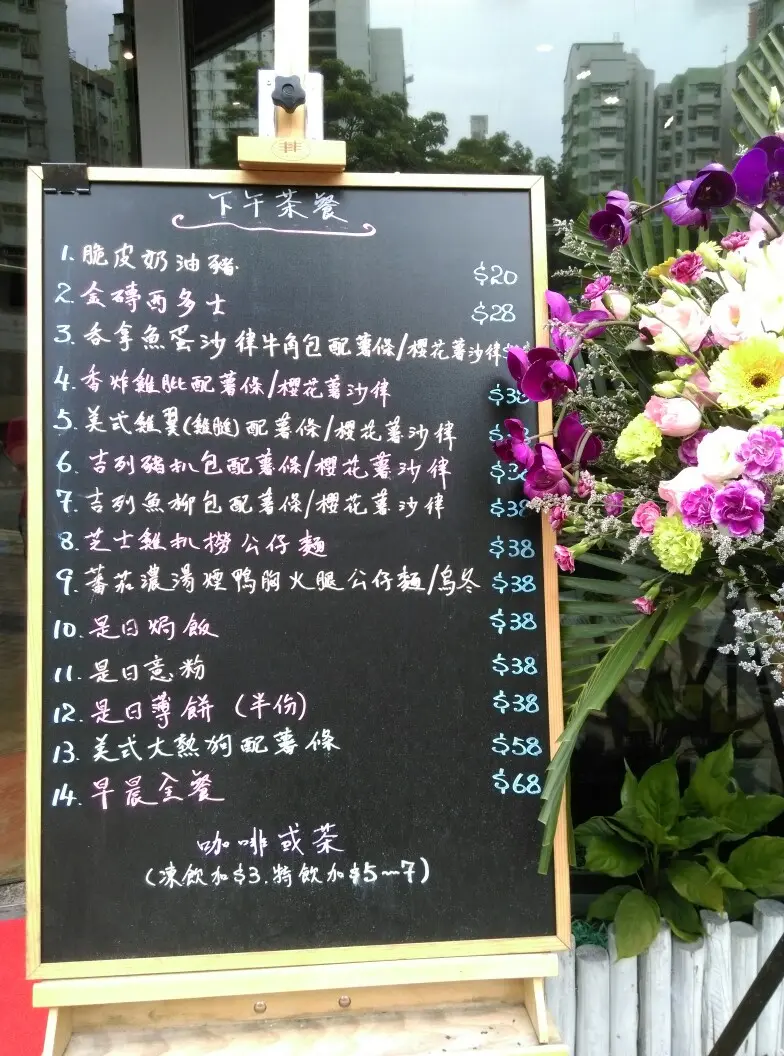 下午茶餐
1. 脆皮奶油豬 $20
2. 金磚西多士 $28
3. 吞拿魚蛋沙律牛角包配薯條/櫻花薯沙律
4. 香炸雞肶配薯條/櫻花薯沙律 $38
5. 美式雞翼(雞腿)配薯條/櫻花薯沙律
6. 吉列豬扒包配薯條/櫻花薯沙律 $38
7. 吉列魚柳包配薯條/櫻花薯沙律 $38
8. 芝士雞扒撈公仔麵 $38
9. 蕃茄濃湯煙鴨胸火腿公仔麵/烏冬 $38
10. 是日焗飯 $38
11. 是日意粉 $38
12. 是日薄餅 (半份) $38
13. 美式大熱狗配薯條 $58
14. 早晨全餐 $68
咖啡或茶
(凍飲加$3.特飲加$5~7)